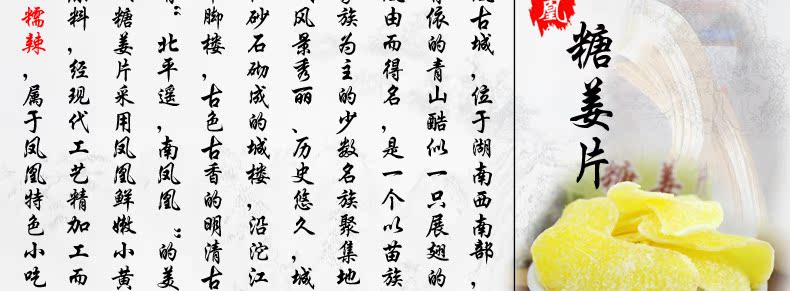 凰
糖姜片
古城，位于湖南西南部，
依的青山酷似一只展翅的
由而得名，是一个以苗族
族为主的少数名族聚集地
风景秀丽、历史悠久，城
砂石砌成的城楼，沿沱江
脚楼，古色古香的明清古
“北平遥，南凤凰”的美
糖姜片采用凤凰鲜嫩小黄
料，经现代工艺精加工而
糯辣，属于凤凰特色小吃